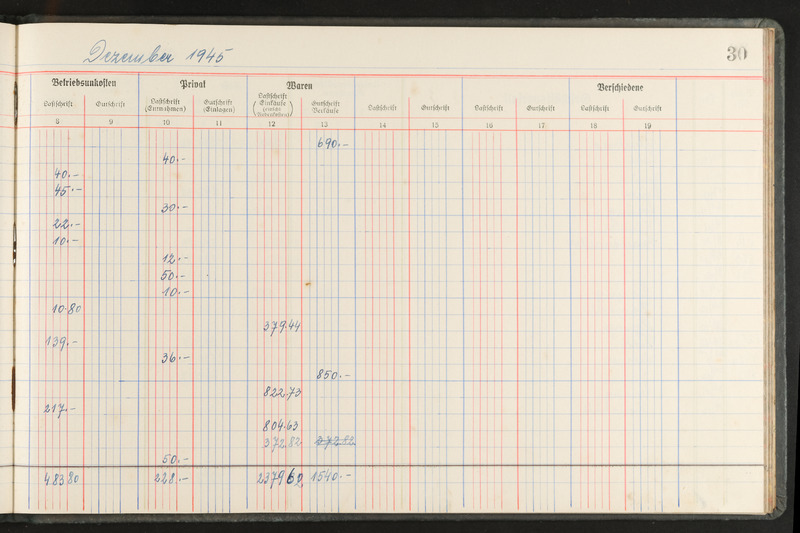 Dezember 1945 30
Betriebsunkosten Privat Waren Verschiedene
Lastschrift Gutschrift Lastschrift (Entnahmen) Gutschrift (Einlagen) Lastschrift (Einkäufe) Gutschrift Verkäufe Lastschrift Gutschrift Lastschrift Gutschrift Lastschrift Gutschrift
8 9 10 11 12 13 14 15 16 17 18 19
690.-
40.-
40.-
45.-
30.-
22.-
10.-
12.-
50.-
10.-
10.80
379.44
139.-
36.-
850.-
822.73
217.-
804.63
372.82 372.82
50.-
483 80 228.- 2379 62 1540.-